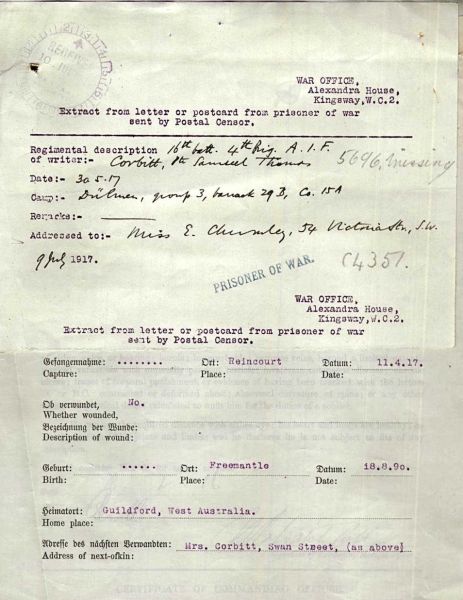 WAR OFFICE,
Alexandra House,
Kingsway, W.C.2.
Extract from letter or postcard from prisoner of war
sent by Postal Censor.
Regimental description 16th batt. 4th Brig. A.I.F.
of writer:- Corbitt, Pte Samuel Thomas 5696, Missing
Date:- 30.5.17
Camp:- Dülmen, group 3, barrack 29B, Co. 15A
Remarks:-
Addressed to:- Miss E. 54 Victoria Str., S.W.
9 July 1917. PRISONER OF WAR. C4351.
WAR OFFICE,
Alexandra House,
Kingsway, W.C.2.
Extract from letter or postcard from prisoner of war
sent by Postal Censor.
Gefangennahme: ........ Ort: Reincourt Datum: 11.4.17.
Capture: Place: Date:
Ob verwundet, No.
Whether wounded,
Bezeichnung der Wunde:
Description of wound:
Geburt: ...... Ort: Freemantle Datum: 18.8.90.
Birth: Place: Date:
Heimatort: Guildford, West Australia.
Home place:
Adresse des nächsten Verwandten: Mrs. Corbitt, Swan Street, (as above)
Address of next-of-kin:
CERTIFICATE OF COMMANDING OFFICER